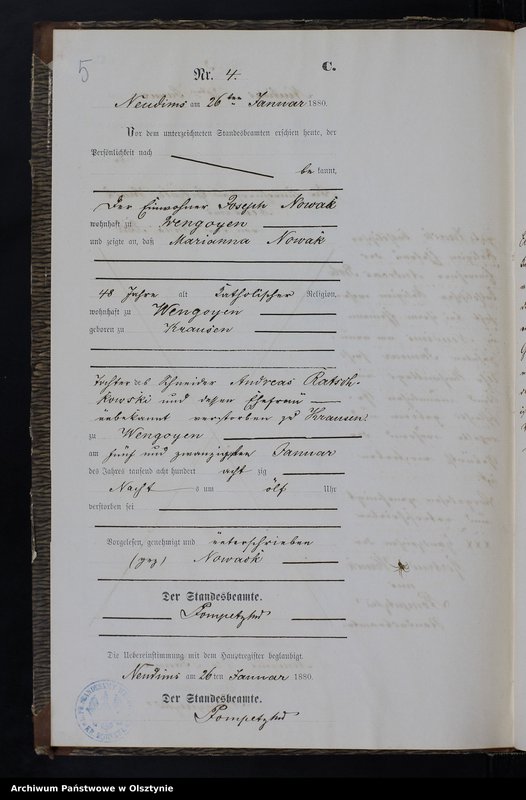 5
C.
Nr. 4.
Neudims am 26ten Januar 1880.
Vor dem unterzeichneten Standesbeamten erschien heute, der
Persönlichkeit nach
bekannt,
Der Einwohner Joseph Nowak
wohnhaft zu Wengoyen
und zeigte an, daß Marianna Nowak
48 Jahre alt katholischer Religion,
wohnhaft zu Wengoyen
geboren zu Krausen
Tochter des Schneider Andreas Ratsch-
kowski und deßen Ehefrau
unbekannt verstorben zu Krausen
zu Wengoyen
am fünf und zwanzigsten Januar
des Jahres tausend acht hundert achtzig
Nachts um ölf Uhr
verstorben sei
Vorgelesen, genehmigt und unterschrieben
(gez) Nowack
Der Standesbeamte.
Die Uebereinstimmung mit dem Hauptregister beglaubigt.
Neudims am 26ten Januar 1880.
Der Standesbeamte.
Archiwum Państwowe w Olsztynie